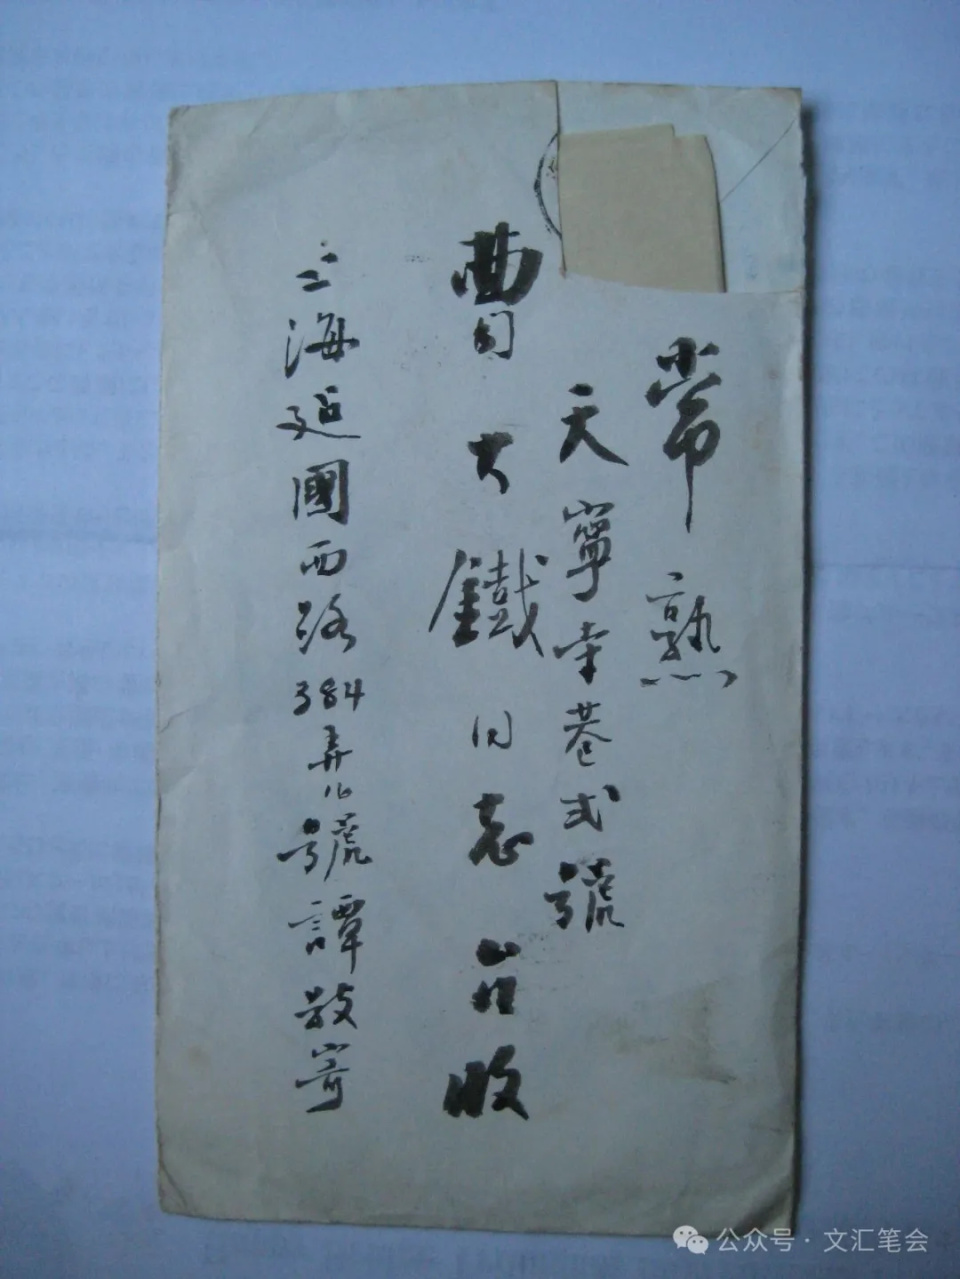 常熟
天寧寺巷弍號
曹大鐵同志收
上海建國西路384弄號譚敬寄
公众号 · 文汇笔会